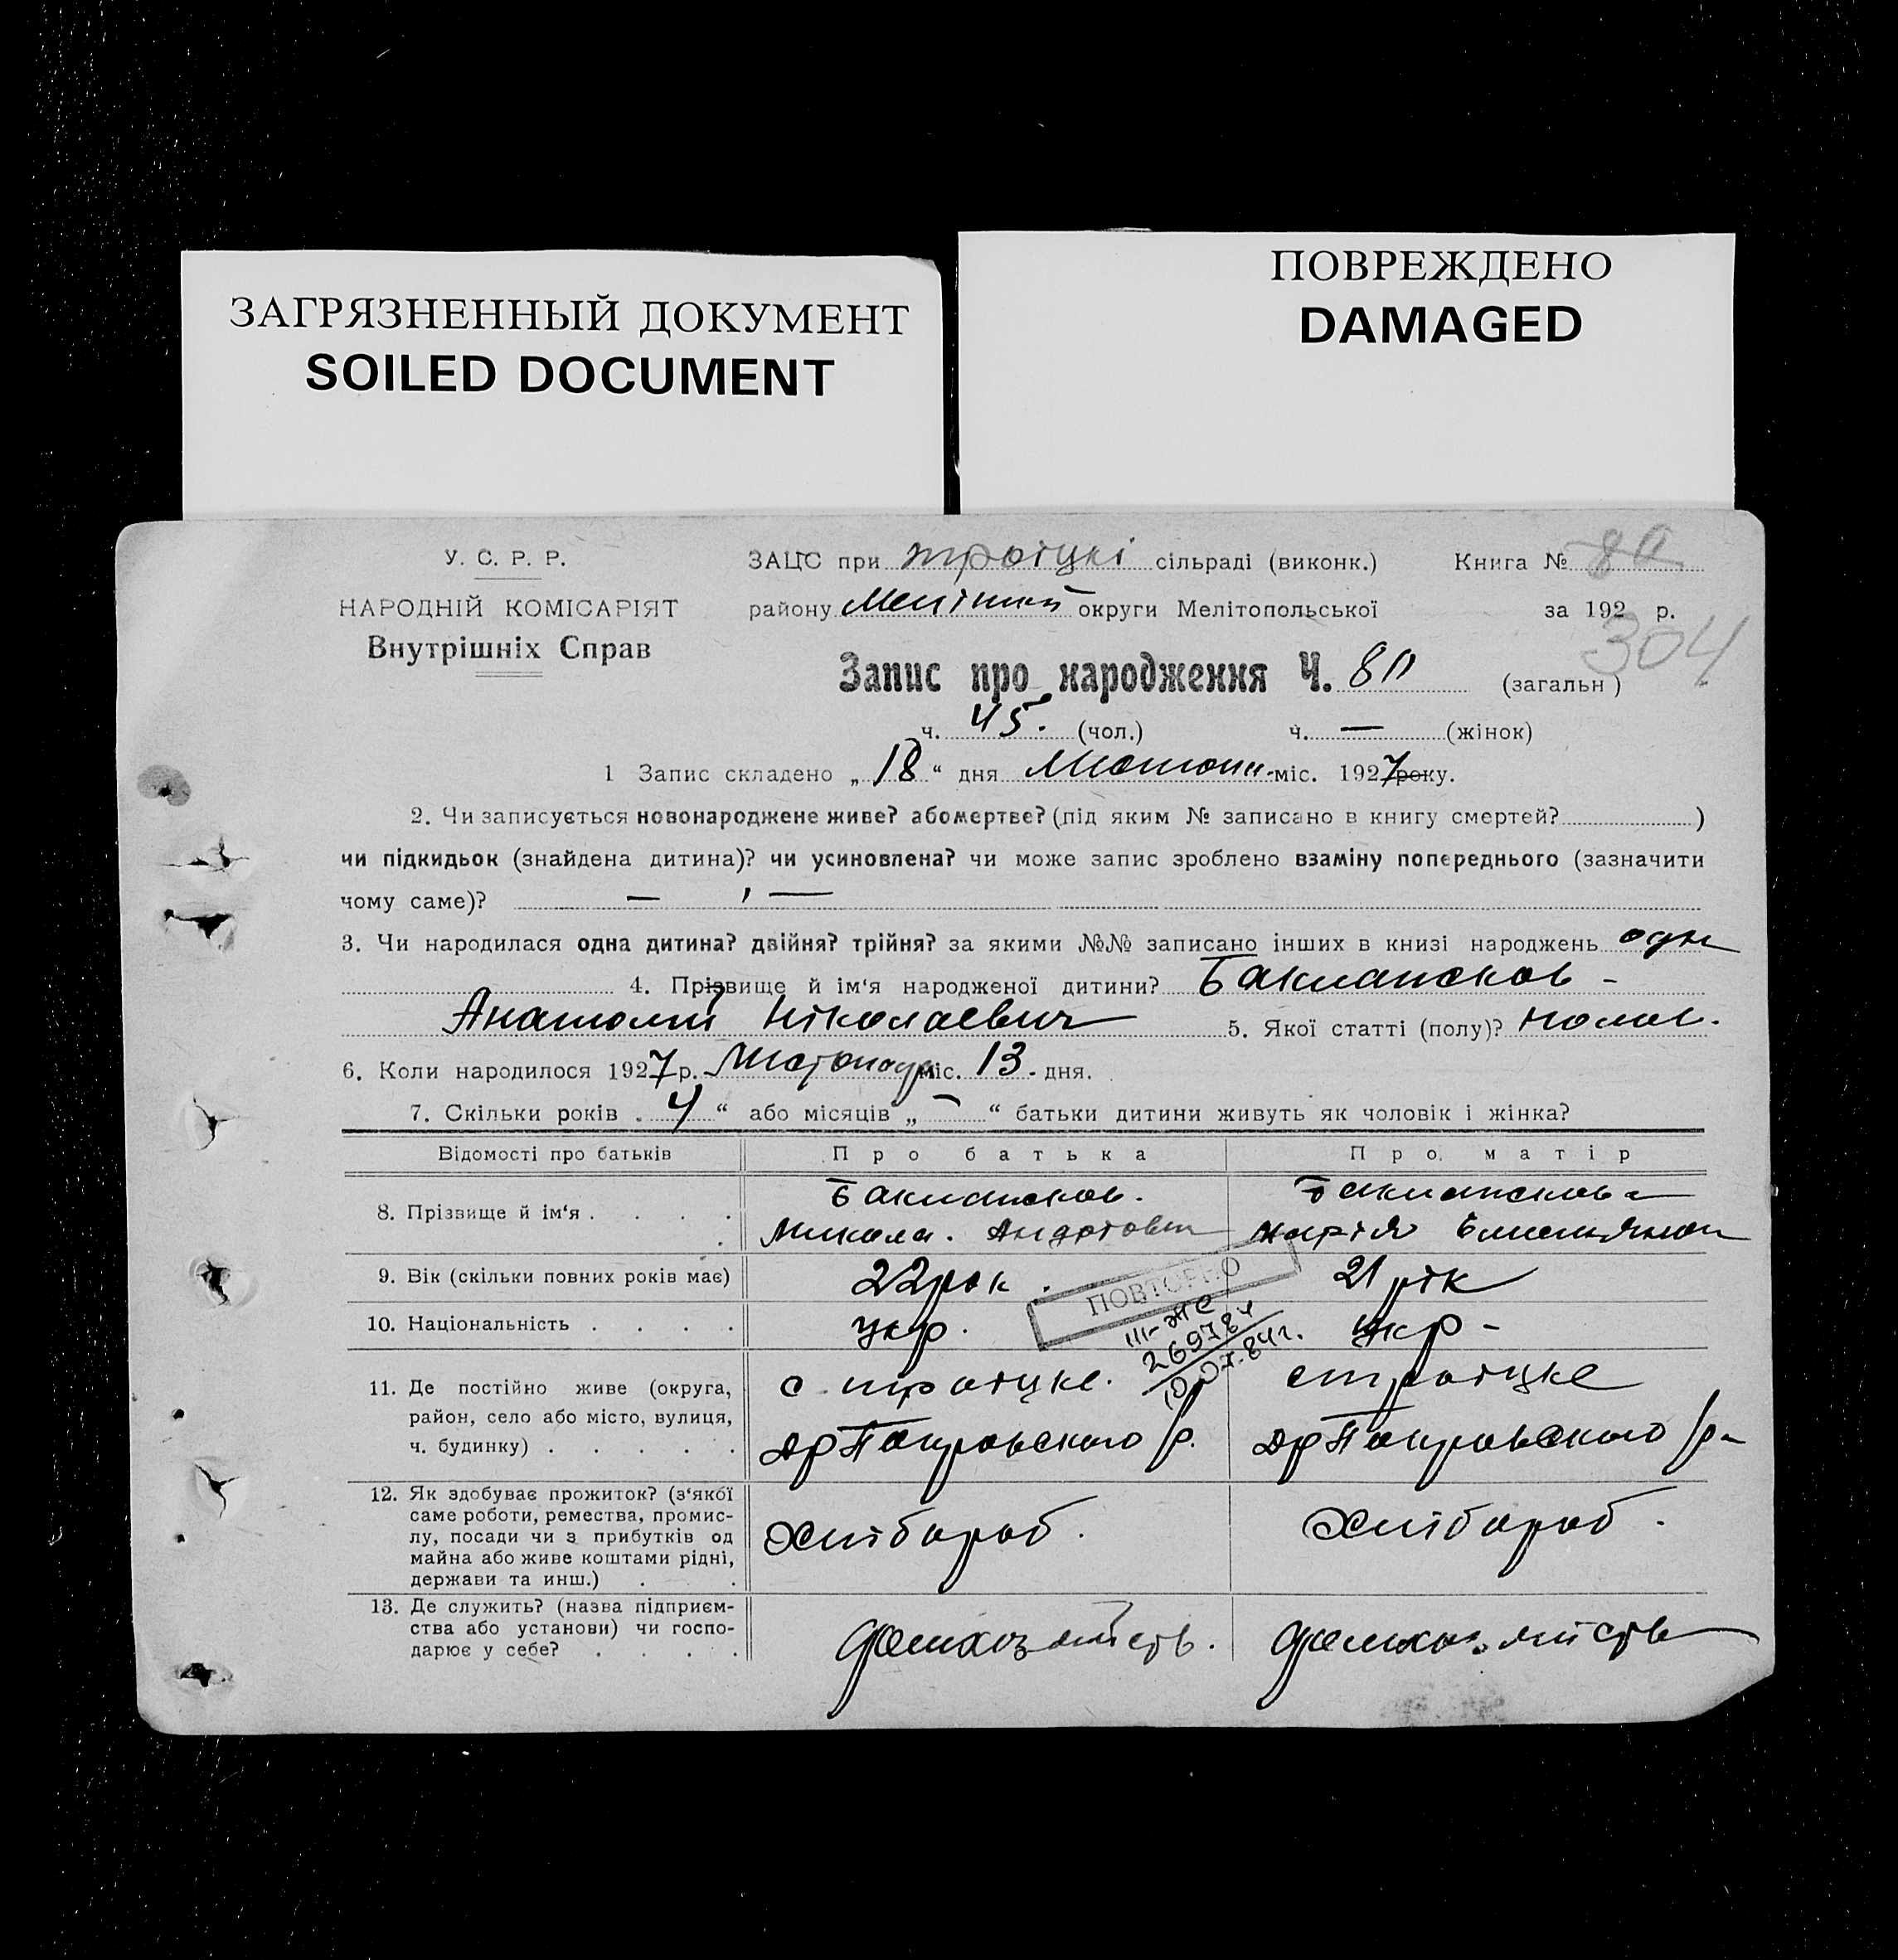 ЗАГРЯЗНЕННЫЙ ДОКУМЕНТ
SOILED DOCUMENT
ПОВРЕЖДЕНО
DAMAGED
У. С. Р. Р.
НАРОДНІЙ КОМІСАРІЯТ
Внутрішніх Справ
ЗАЦС при троцкі сільраді (виконк.)
Книга №
району округи Мелітопольської
за 192 р.
304
Запис про народження Ч. 80 (загальн)
ч. 45. (чол.) ч. — (жінок)
1 Запис складено „18“ дня міс. 1927 року.
2. Чи записується новонароджене живе? або мертве? (під яким № записано в книгу смертей? )
чи підкидьок (знайдена дитина)? чи усиновлена? чи може запис зроблено взаміну попереднього (зазначити
чому саме)? — , —
3. Чи народилася одна дитина? двійня? трійня? за якими №№ записано інших в книзі народжень
4. Прізвище й ім‘я народженої дитини?
Анатолій Ніколаевич 5. Якої статті (полу)?
6. Коли народилося 1927 р. Листопад міс. 13 дня.
7. Скільки років „4“ або місяців „—“ батьки дитини живуть як чоловік і жінка?
Відомості про батьків
Про батька
Про матір
8. Прізвище й ім‘я . . . . .
Микола.
Марія
9. Вік (скільки повних років має)
22 рок.
21 рік
10. Національність . . . .
укр.
укр -
ПОВТОРНО
26978
11. Де постійно живе (округа,
район, село або місто, вулиця,
ч. будинку) . . . . .
с. троцке.
с троцке
Покровського р.
Покровського р-
12. Як здобуває прожиток? (з‘якої
саме роботи, ремества, промис-
лу, посади чи з прибутків од
майна або живе коштами рідні,
держави та инш.) . .
Хлібороб.
Хлібороб.
13. Де служить? (назва підприєм-
ства або установи) чи госпо-
дарює у себе? . . . .